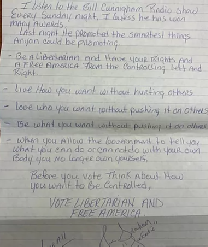 I listen to the Bill Cunningham Radio show
Every Sunday night, I guess he has won
many Awards.
Last night He promoted the smartest things
Anyone could be promoting.
- Be a Libertarian and Have your Rights and
A Free America from the Controlling Left and
Right
- Live How you want without hurting others
- Love who you want without pushing it on others
- Be what you want without pushing it on others
- When you Allow the Government to tell you
what you can do or cannot do with your own
Body you no longer own yourself.
Before you Vote Think About How
you want to be Controlled,
VOTE LIBERTARIAN AND
FREE AMERICA